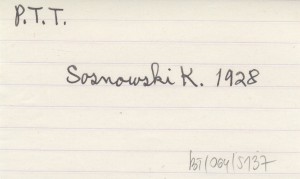 P.T.T.
Sosnowski K. 1928
BT/064/S137